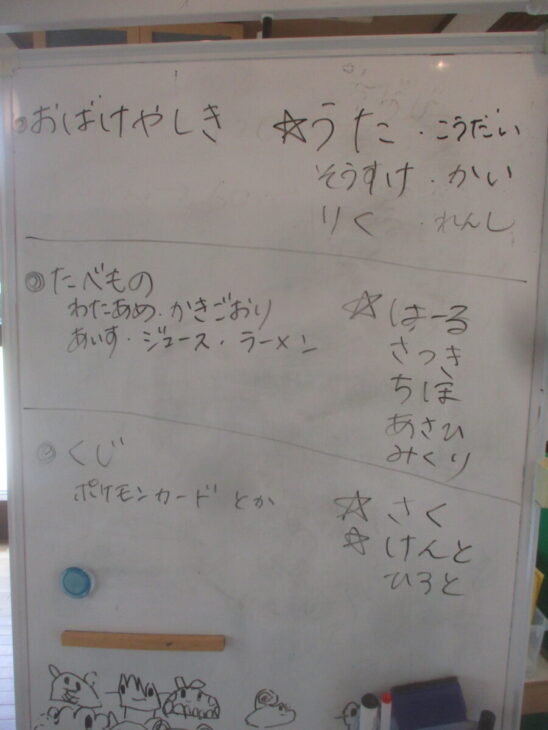 ◎おばけやしき ☆うた・こうだい
そうすけ・かい
りく ・れんし
◎たべもの
わたあめ・かきごおり
あいす・ジュース・ラーメン
☆はーる
さつき
ちほ
あさひ
みくり
◎くじ
ポケモンカードとか
☆さく
☆けんと
ひろと